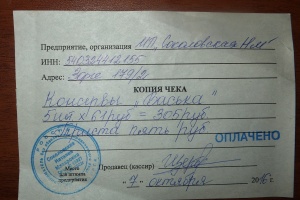 Предприятие, организация ИП, Соколовская Н.М.
ИНН: 540324412155
Адрес: 179/2
КОПИЯ ЧЕКА
Консервы "Васька"
5шт х 61руб = 305руб
Триста пять руб
ОПЛАЧЕНО
Продавец (кассир)
Место для штампа предприятия
"7" октября 2016 г.